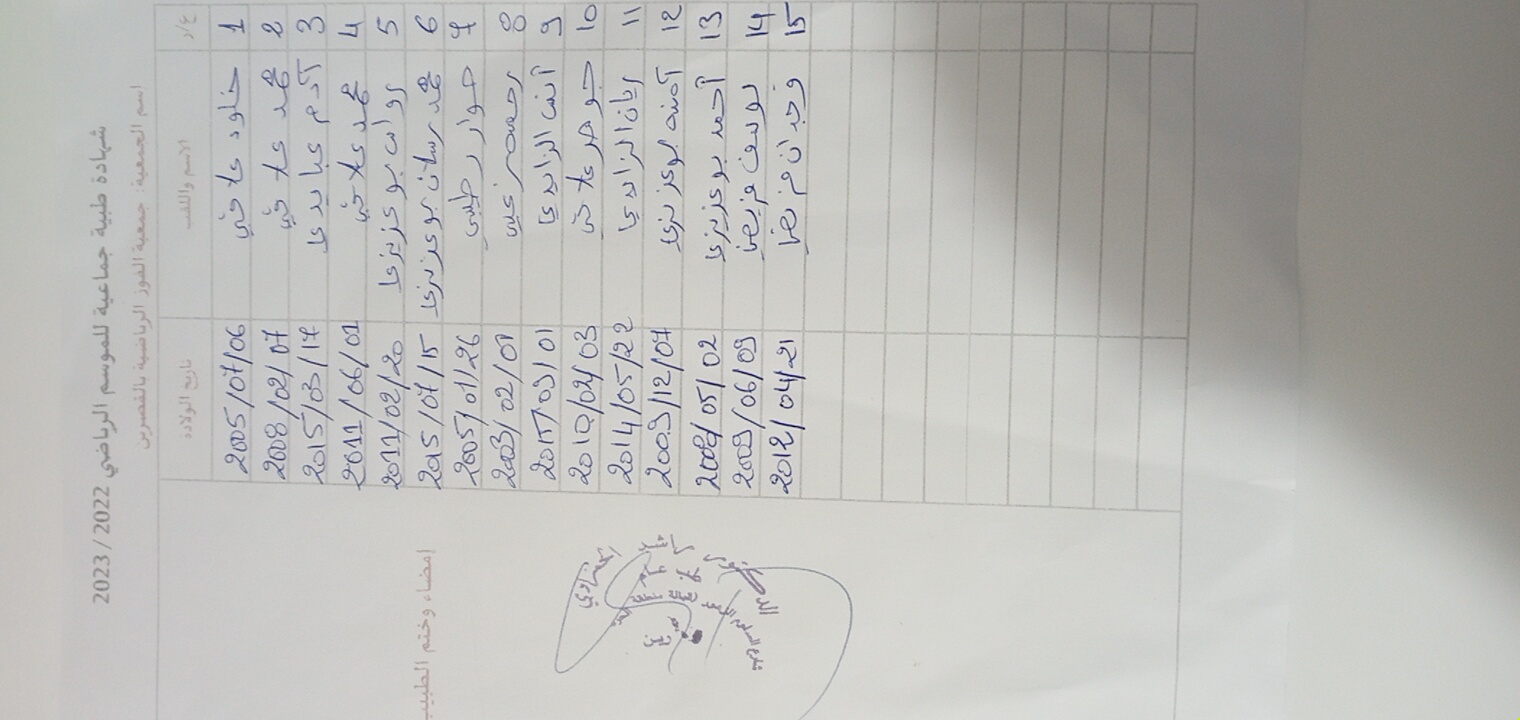 شهادة طبية جماعية للموسم الرياضي 2022 / 2023
اسم الجمعية: جمعية الفوز الرياضية بالقصرين
ع/د الاسم واللقب تاريخ الولادة
1 خلود علاقي 2005/07/06
2 محمد علاقي 2008/02/07
3 آدم عبايدي 2015/03/17
4 محمد علاقي 2011/06/01
5 رواب بوعزيزي 2011/02/20
6 محمد رسلان بوعزيزي 2015/07/15
7 جوار رطيبي 2005/01/26
8 2003/02/01
9 أنس الزايدي 2015/03/01
10 جوهر علاقي 2010/02/03
11 ريان الزايدي 2014/05/22
12 آمنه بوعزيزي 2009/12/07
13 أحمد بوعزيزي 05/02
14 يوسف قريصي 2009/06/09
15 وجدان قريصي 2012/04/21
إمضاء وختم الطبيب